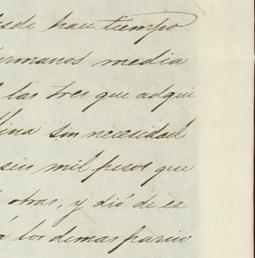 desde hace tiempo
hermanos media
las tres que adqui
sin necesidad
seis mil pesos que
otras, y dió de es
á los demas parien